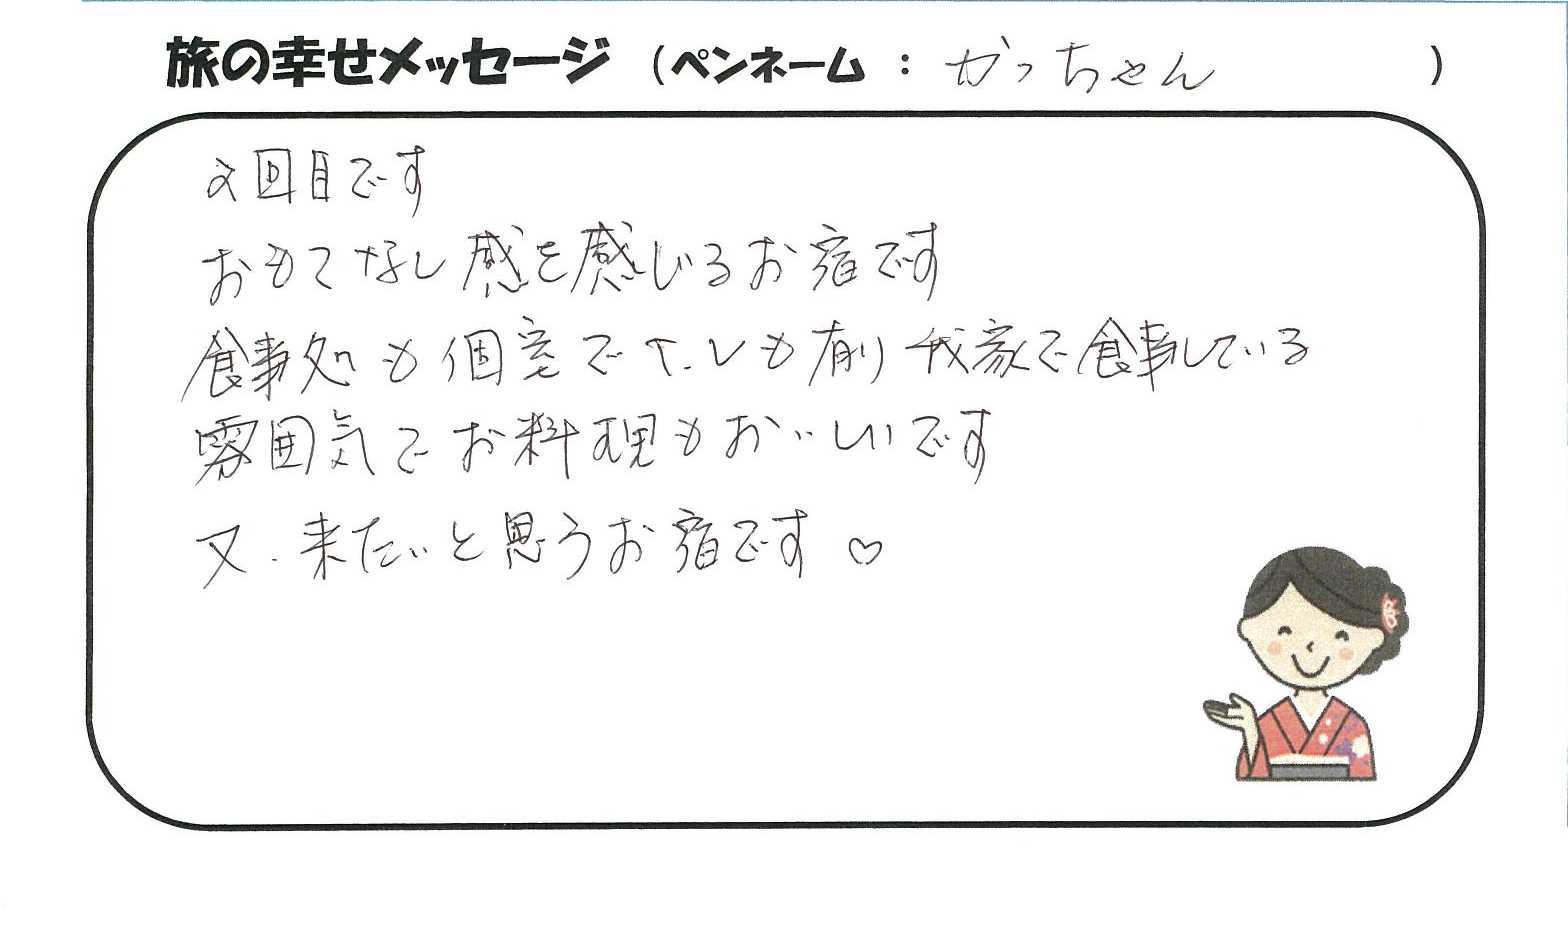 旅の幸せメッセージ （ペンネーム ： かっちゃん ）
2回目です
おもてなし感を感じるお宿です
食事処も個室でTVも有り我家で食事している
雰囲気でお料理もおいしいです
又、来たいと思うお宿です♡